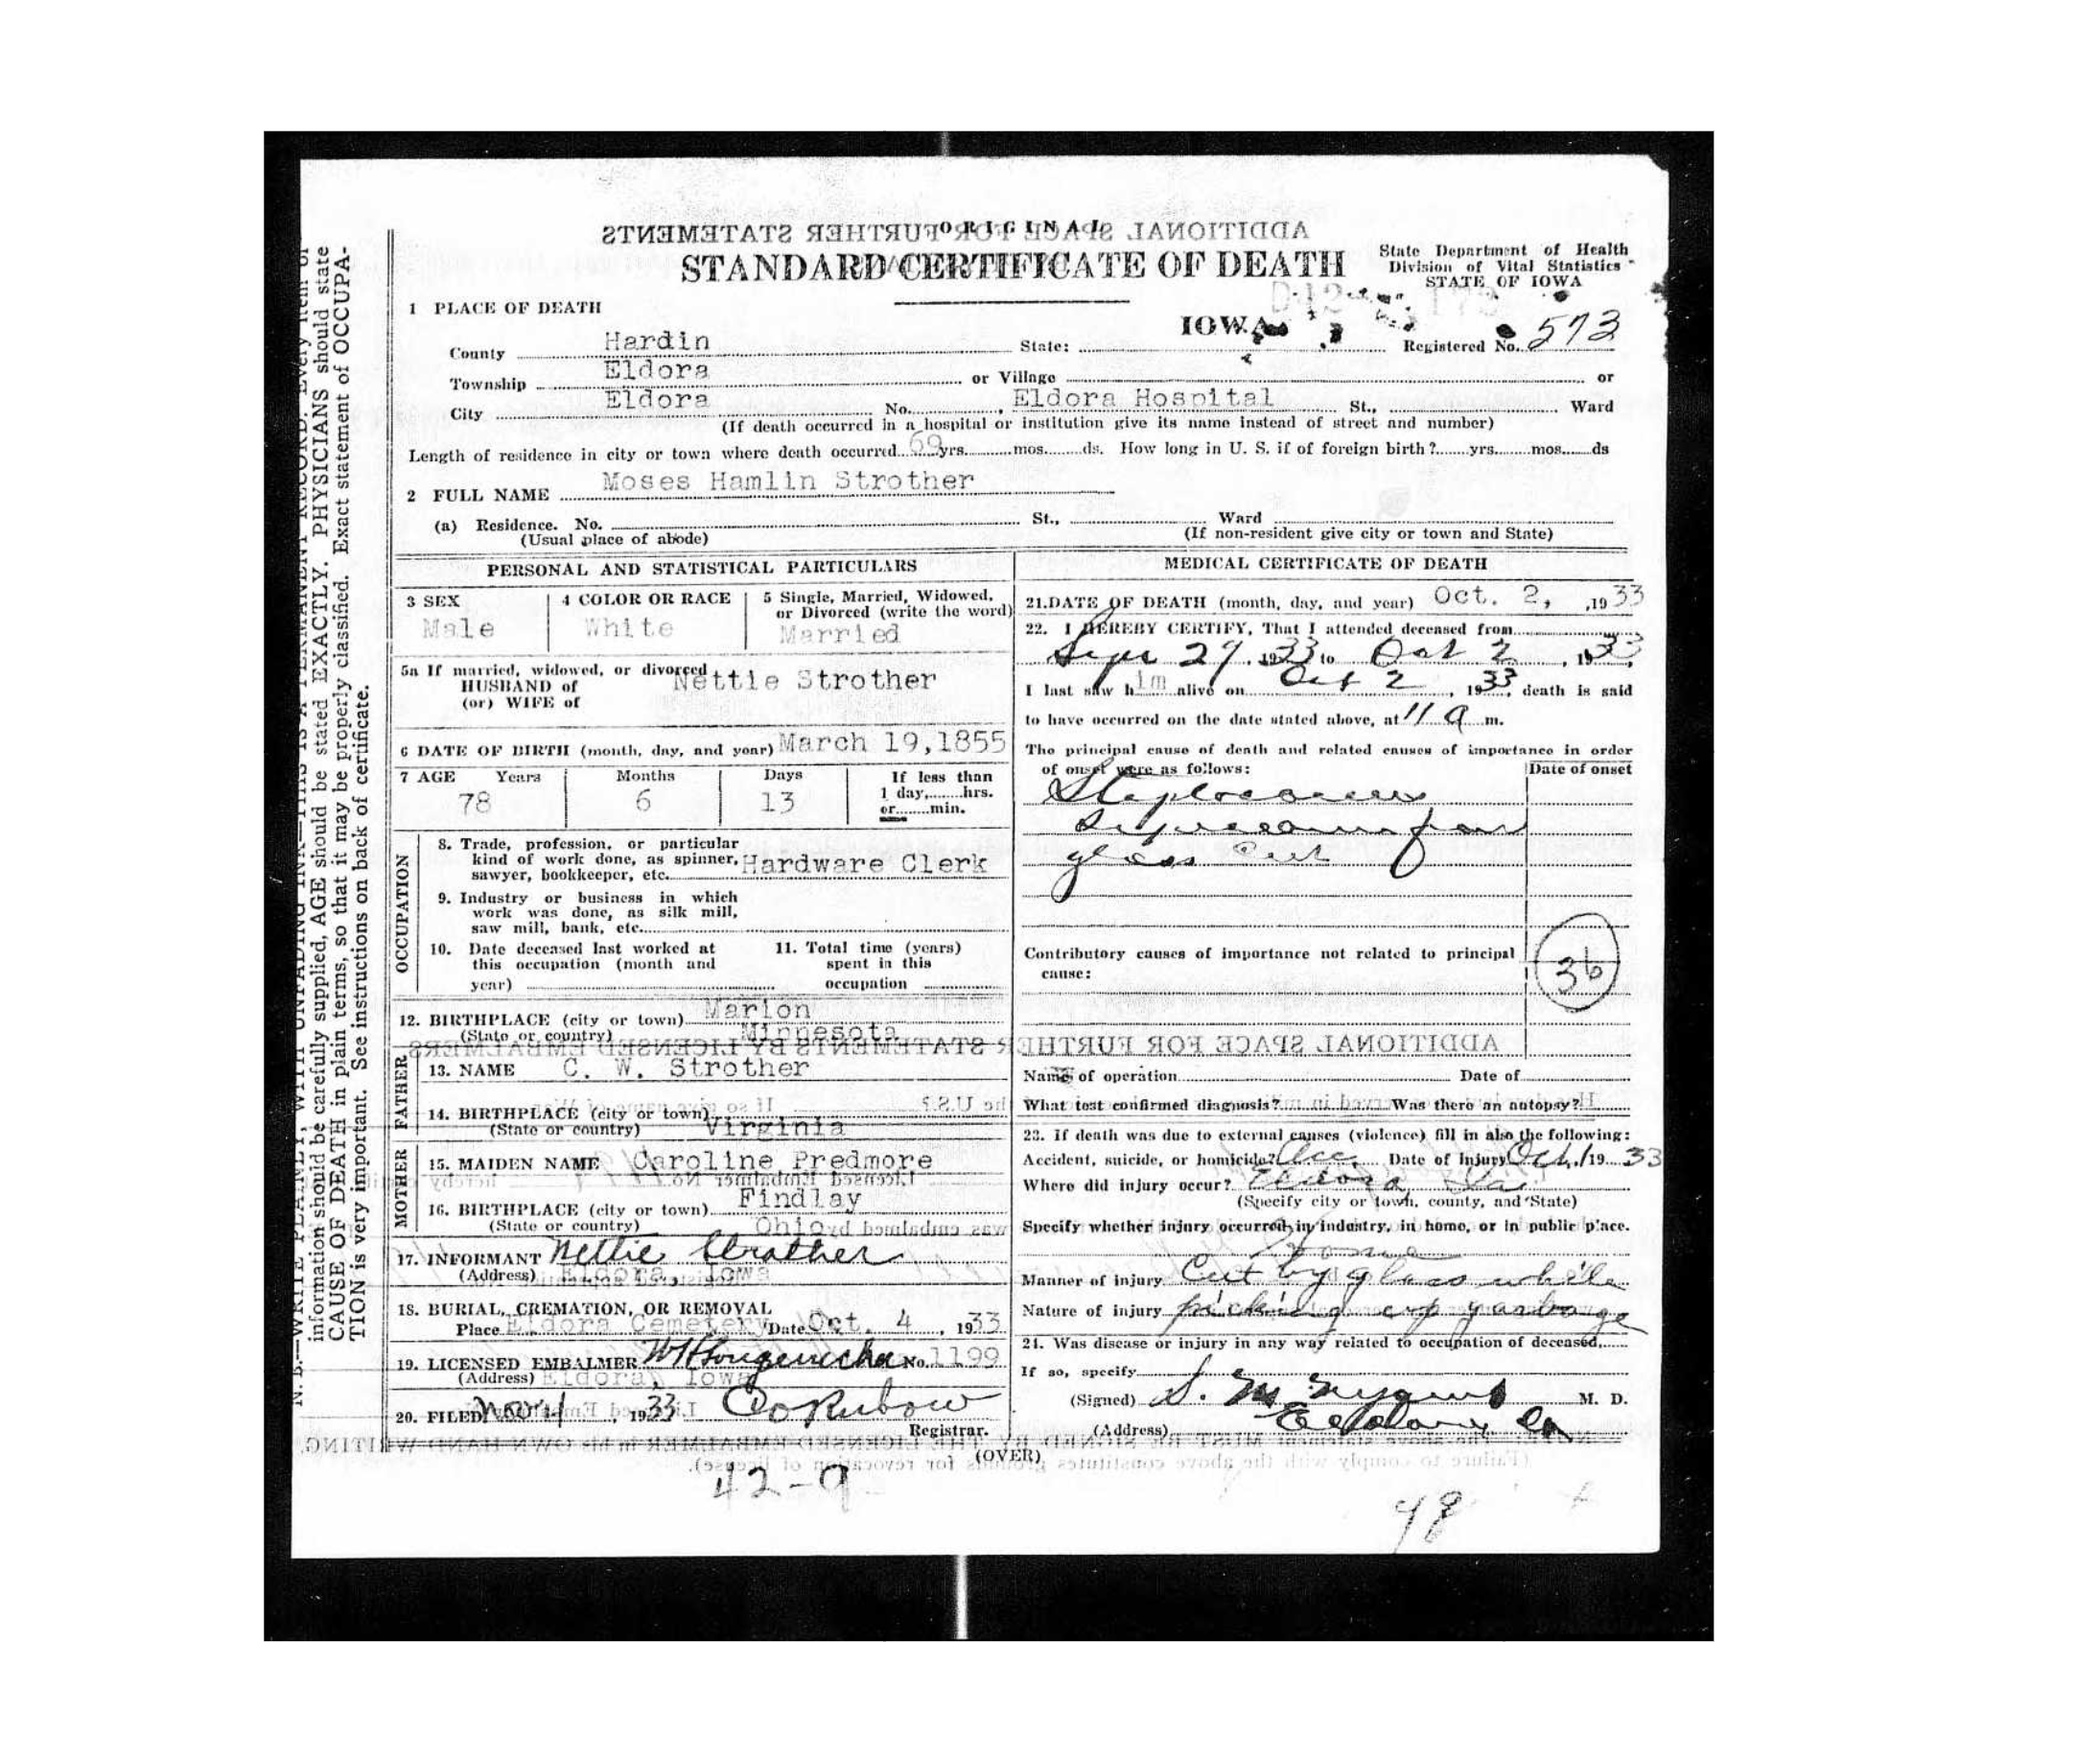 ORIGINAL
STANDARD CERTIFICATE OF DEATH
State Department of Health
Division of Vital Statistics
STATE OF IOWA
1 PLACE OF DEATH
County Hardin State: IOWA Registered No. 573
Township Eldora or Village or
City Eldora No. , Eldora Hospital St., Ward
(If death occurred in a hospital or institution give its name instead of street and number)
Length of residence in city or town where death occurred 69 yrs. mos. ds. How long in U. S. if of foreign birth? yrs. mos. ds
2 FULL NAME Moses Hamlin Strother
(a) Residence. No. St., Ward
(Usual place of abode) (If non-resident give city or town and State)
PERSONAL AND STATISTICAL PARTICULARS
3 SEX Male
4 COLOR OR RACE White
5 Single, Married, Widowed, or Divorced (write the word) Married
5a If married, widowed, or divorced
HUSBAND of Nettie Strother
(or) WIFE of
6 DATE OF BIRTH (month, day, and year) March 19,1855
7 AGE Years Months Days If less than
78 6 13 1 day, hrs.
or min.
OCCUPATION
8. Trade, profession, or particular
kind of work done, as spinner, Hardware Clerk
sawyer, bookkeeper, etc.
9. Industry or business in which
work was done, as silk mill,
saw mill, bank, etc.
10. Date deceased last worked at
this occupation (month and
year)
11. Total time (years)
spent in this
occupation
12. BIRTHPLACE (city or town) Marion
(State or country) Minnesota
FATHER
13. NAME C. W. Strother
14. BIRTHPLACE (city or town)
(State or country) Virginia
MOTHER
15. MAIDEN NAME Caroline Predmore
16. BIRTHPLACE (city or town) Findlay
(State or country) Ohio
17. INFORMANT Nettie Strother
(Address) Eldora Iowa
18. BURIAL, CREMATION, OR REMOVAL
Place Eldora Cemetery Date Oct. 4, 1933
19. LICENSED EMBALMER No. 1199
(Address) Eldora, Iowa
20. FILED 1933
Registrar.
MEDICAL CERTIFICATE OF DEATH
21. DATE OF DEATH (month, day, and year) Oct. 2, ,1933
22. I HEREBY CERTIFY, That I attended deceased from
Sept 29, 1933 to Oct 2, 1933,
I last saw him alive on Oct 2, 1933, death is said
to have occurred on the date stated above, at 11 a m.
The principal cause of death and related causes of importance in order
of onset were as follows: Date of onset
glass cut
Contributory causes of importance not related to principal
cause:
36
Name of operation Date of
What test confirmed diagnosis? Was there an autopsy?
23. If death was due to external causes (violence) fill in also the following:
Accident, suicide, or homicide? Acc. Date of Injury Oct. 1 1933
Where did injury occur? Eldora, Ia.
(Specify city or town, county, and State)
Specify whether injury occurred in industry, in home, or in public place.
Home
Manner of injury Cut by glass while
Nature of injury picking up garbage
24. Was disease or injury in any way related to occupation of deceased,
If so, specify
(Signed) M. D.
(Address) Eldora, Ia
(OVER)
42-9
98
information should be carefully supplied, AGE should be stated EXACTLY. PHYSICIANS should state
CAUSE OF DEATH in plain terms, so that it may be properly classified. Exact statement of OCCUPA-
TION is very important. See instructions on back of certificate.